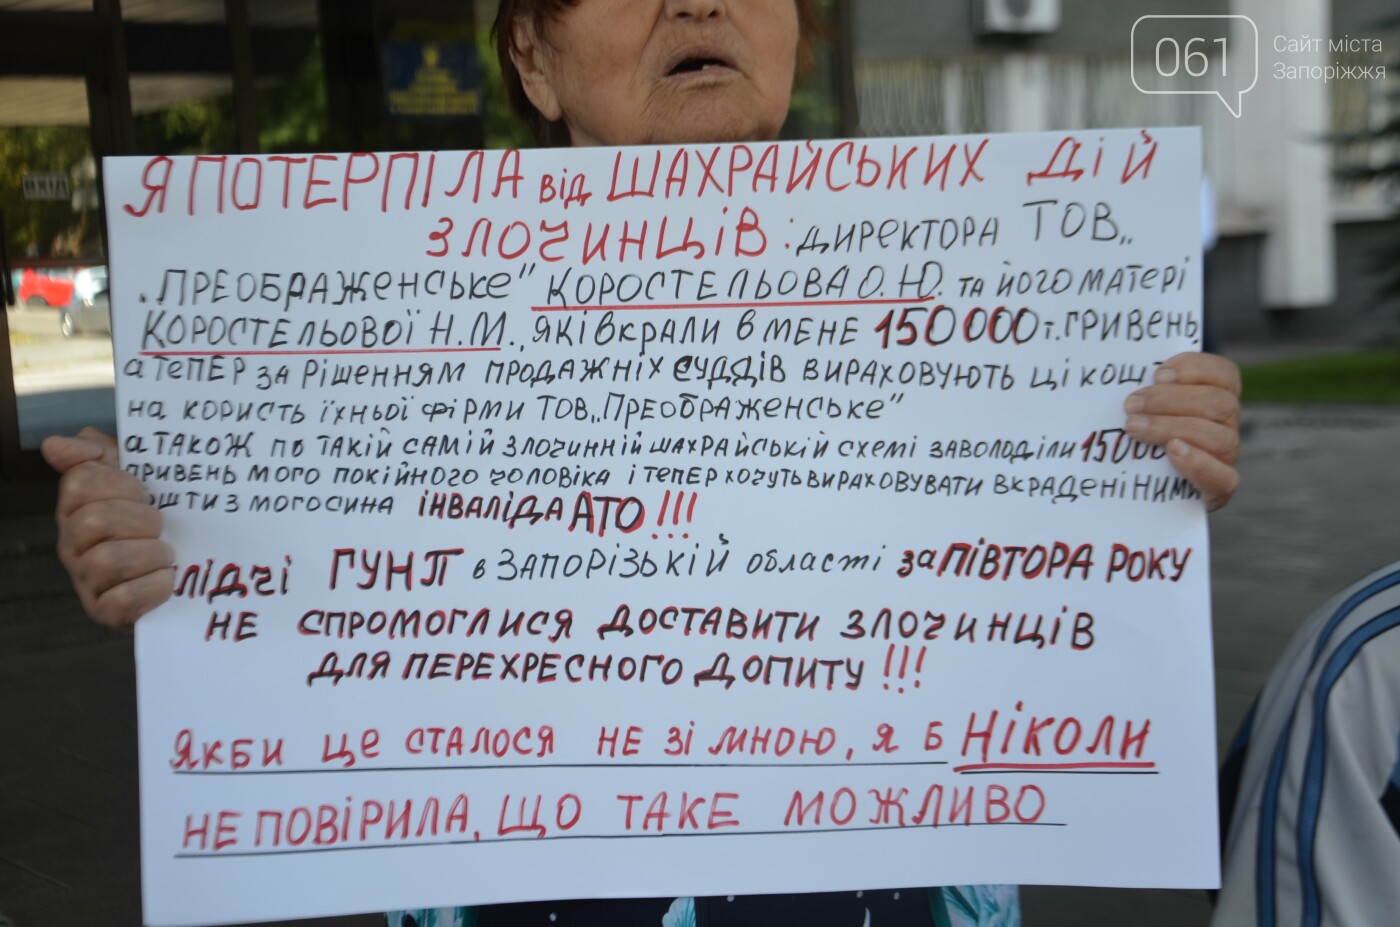 061
Сайт міста
Запоріжжя
Я ПОТЕРПІЛА від ШАХРАЙСЬКИХ ДІЙ
ЗЛОЧИНЦІВ: ДИРЕКТОРА ТОВ„
„ПРЕОБРАЖЕНСЬКЕ" КОРОСТЕЛЬОВА О.Ю. ТА ЙОГО МАТЕРІ
КОРОСТЕЛЬОВОЇ Н.М., ЯКІ ВКРАЛИ В МЕНЕ 150000 т. ГРИВЕНЬ,
а ТЕПЕР ЗА РІШЕННЯМ ПРОДАЖНІХ СУДДІВ ВИРАХОВУЮТЬ ЦІ КОШ
НА КОРИСТЬ ЇХНЬОЇ ФІРМИ ТОВ„ПРЕОБРАЖЕНСЬКЕ"
а ТАКОЖ ПО ТАКІЙ САМІЙ ЗЛОЧИННІЙ ШАХРАЙСЬКІЙ СХЕМІ ЗАВОЛОДІЛИ 15000
ГРИВЕНЬ МОГО ПОКІЙНОГО ЧОЛОВІКА І ТЕПЕР ХОЧУТЬ ВИРАХОВУВАТИ ВКРАДЕНІ НИМИ
ОШТИ З МОГО СИНА ІНВАЛІДА АТО!!!
ЛІДЧІ ГУНП в ЗАПОРІЗЬКІЙ області за ПІВТОРА РОКУ
НЕ СПРОМОГЛИСЯ ДОСТАВИТИ ЗЛОЧИНЦІВ
ДЛЯ ПЕРЕХРЕСНОГО ДОПИТУ!!!
ЯКБИ ЦЕ СТАЛОСЯ НЕ ЗІ МНОЮ, Я Б НІКОЛИ
НЕ ПОВІРИЛА, ЩО ТАКЕ МОЖЛИВО